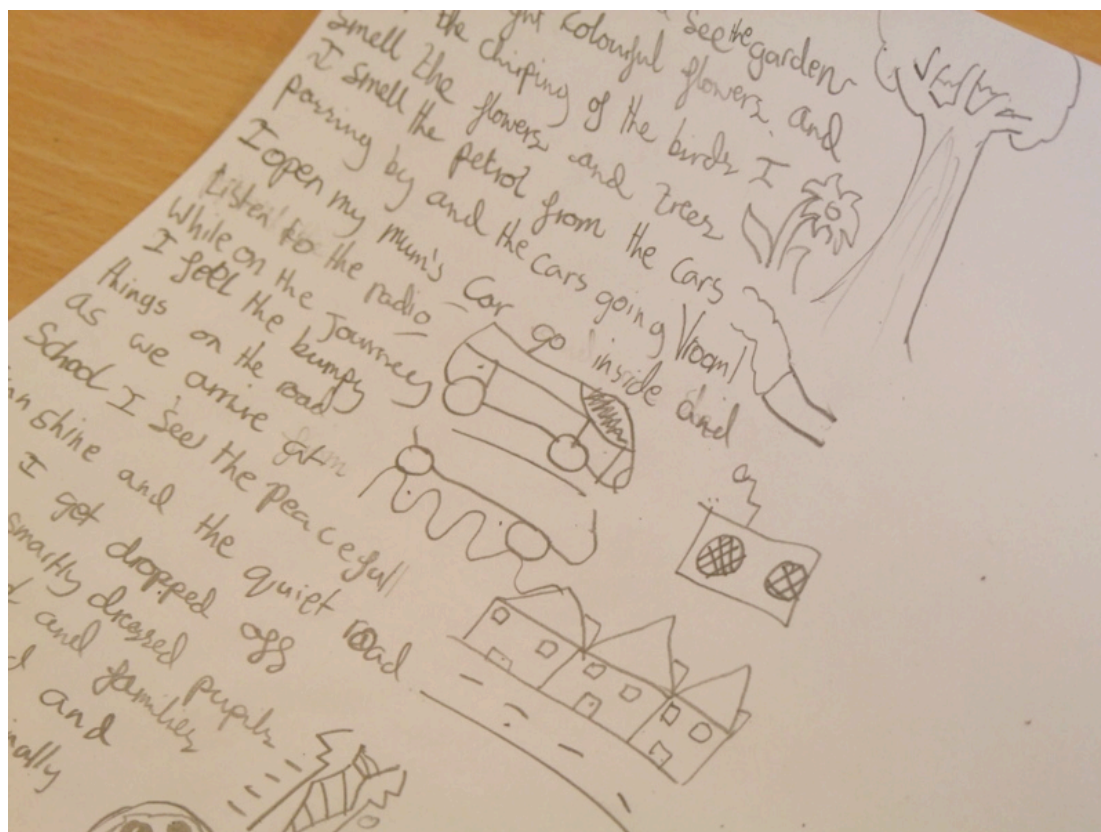 See the garden
Kolourful flowers, and
the chirping of the birds I
Smell the flowers and trees
I smell the petrol from the cars
passing by and the cars going Vroom!
I open my mum's Car go inside and
listen to the radio
While on the Journey
I feel the bumpy
things on the road
As we arrive at
School I See the peacefull
shine and the quiet road
I got dropped off
smartly dressed pupils
and families
and